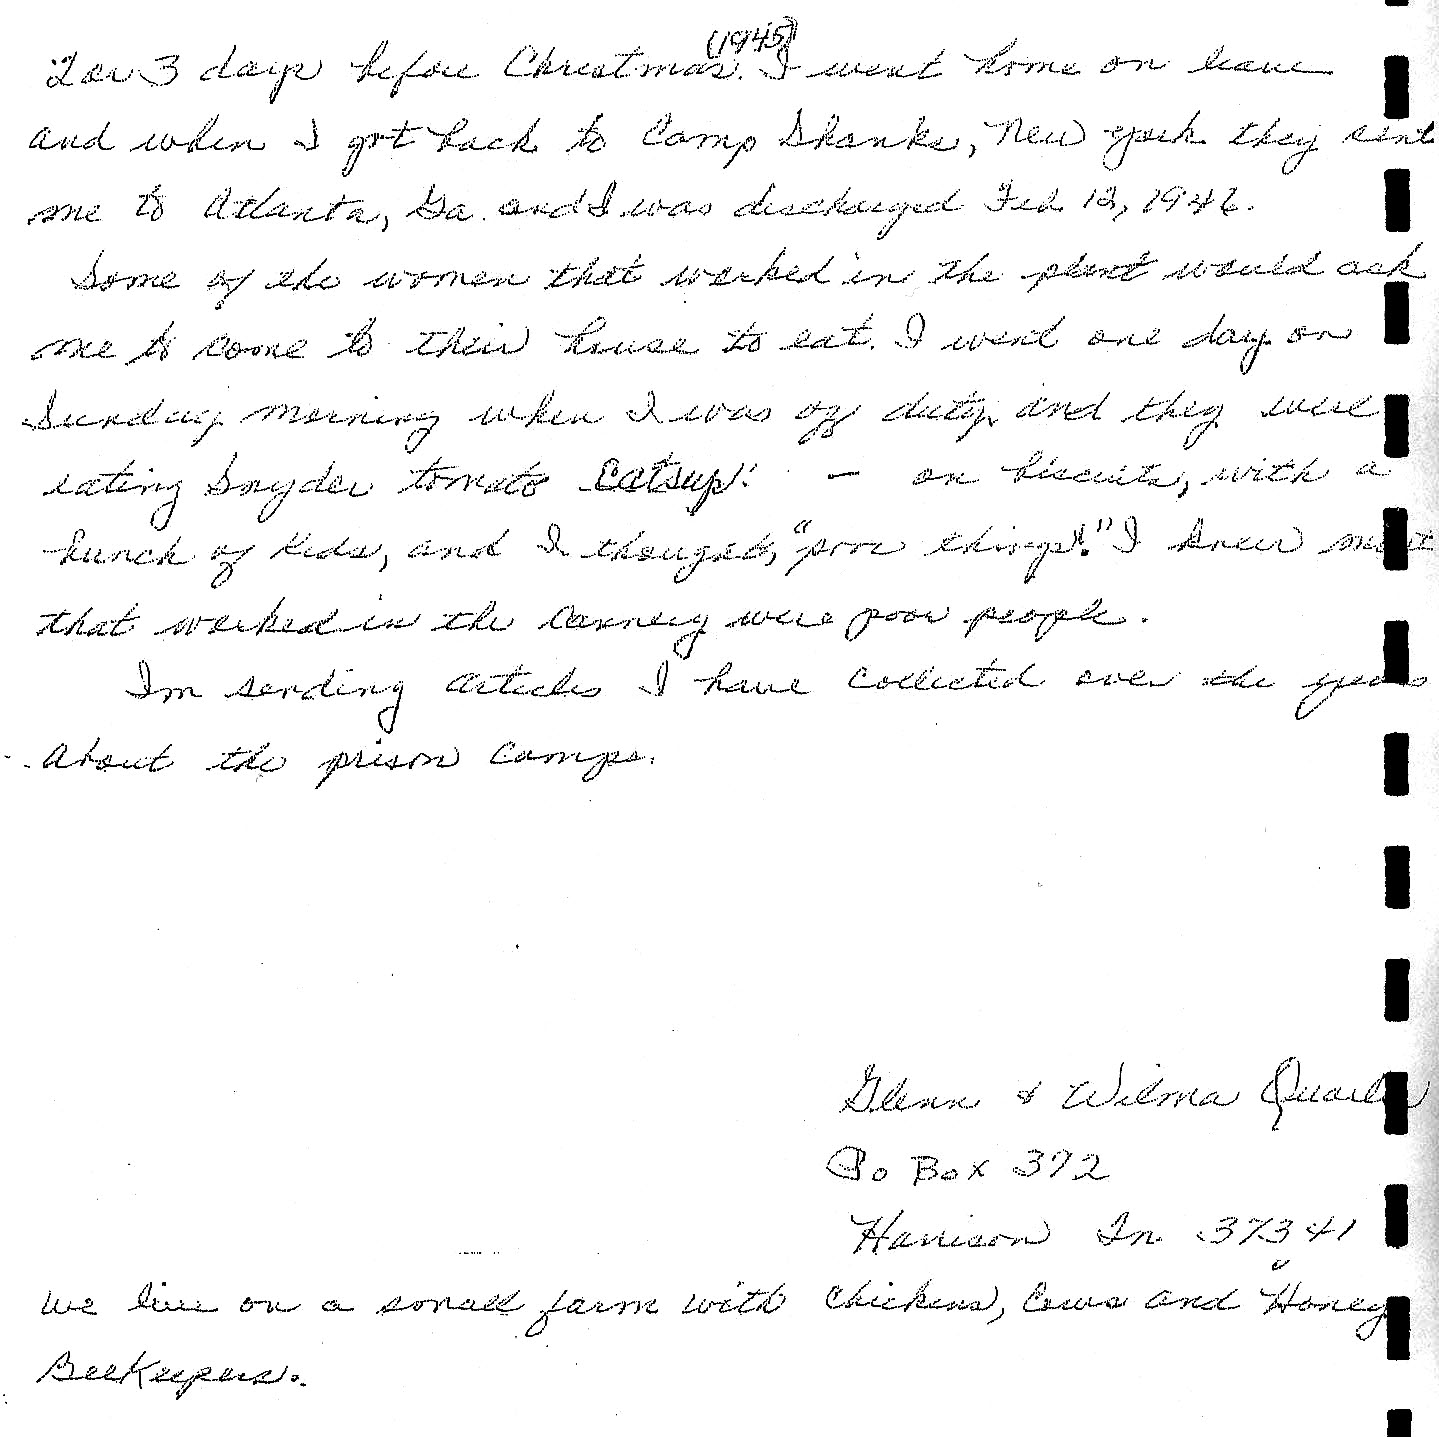 2 or 3 days before Christmas. (1945) I went home on leave
and when I got back to Camp Shanks, New York they sent
me to Atlanta, Ga. and I was discharged Feb 12, 1946.
Some of the women that worked in the plant would ask
me to come to their house to eat. I went one day on
Sunday morning when I was of duty, and they were
eating Snyder tomato Catsup! — on biscuits, with a
bunch of kids, and I thought, "poor things!" I knew most
that worked in the Cannery were poor people.
Im sending articles I have collected over the years
about the prison camps.
Glenn & Wilma Quarles
Po Box 372
Harrison Tn 37341
We live on a small farm with chickens, Cows and "Honey
Beekeepers.